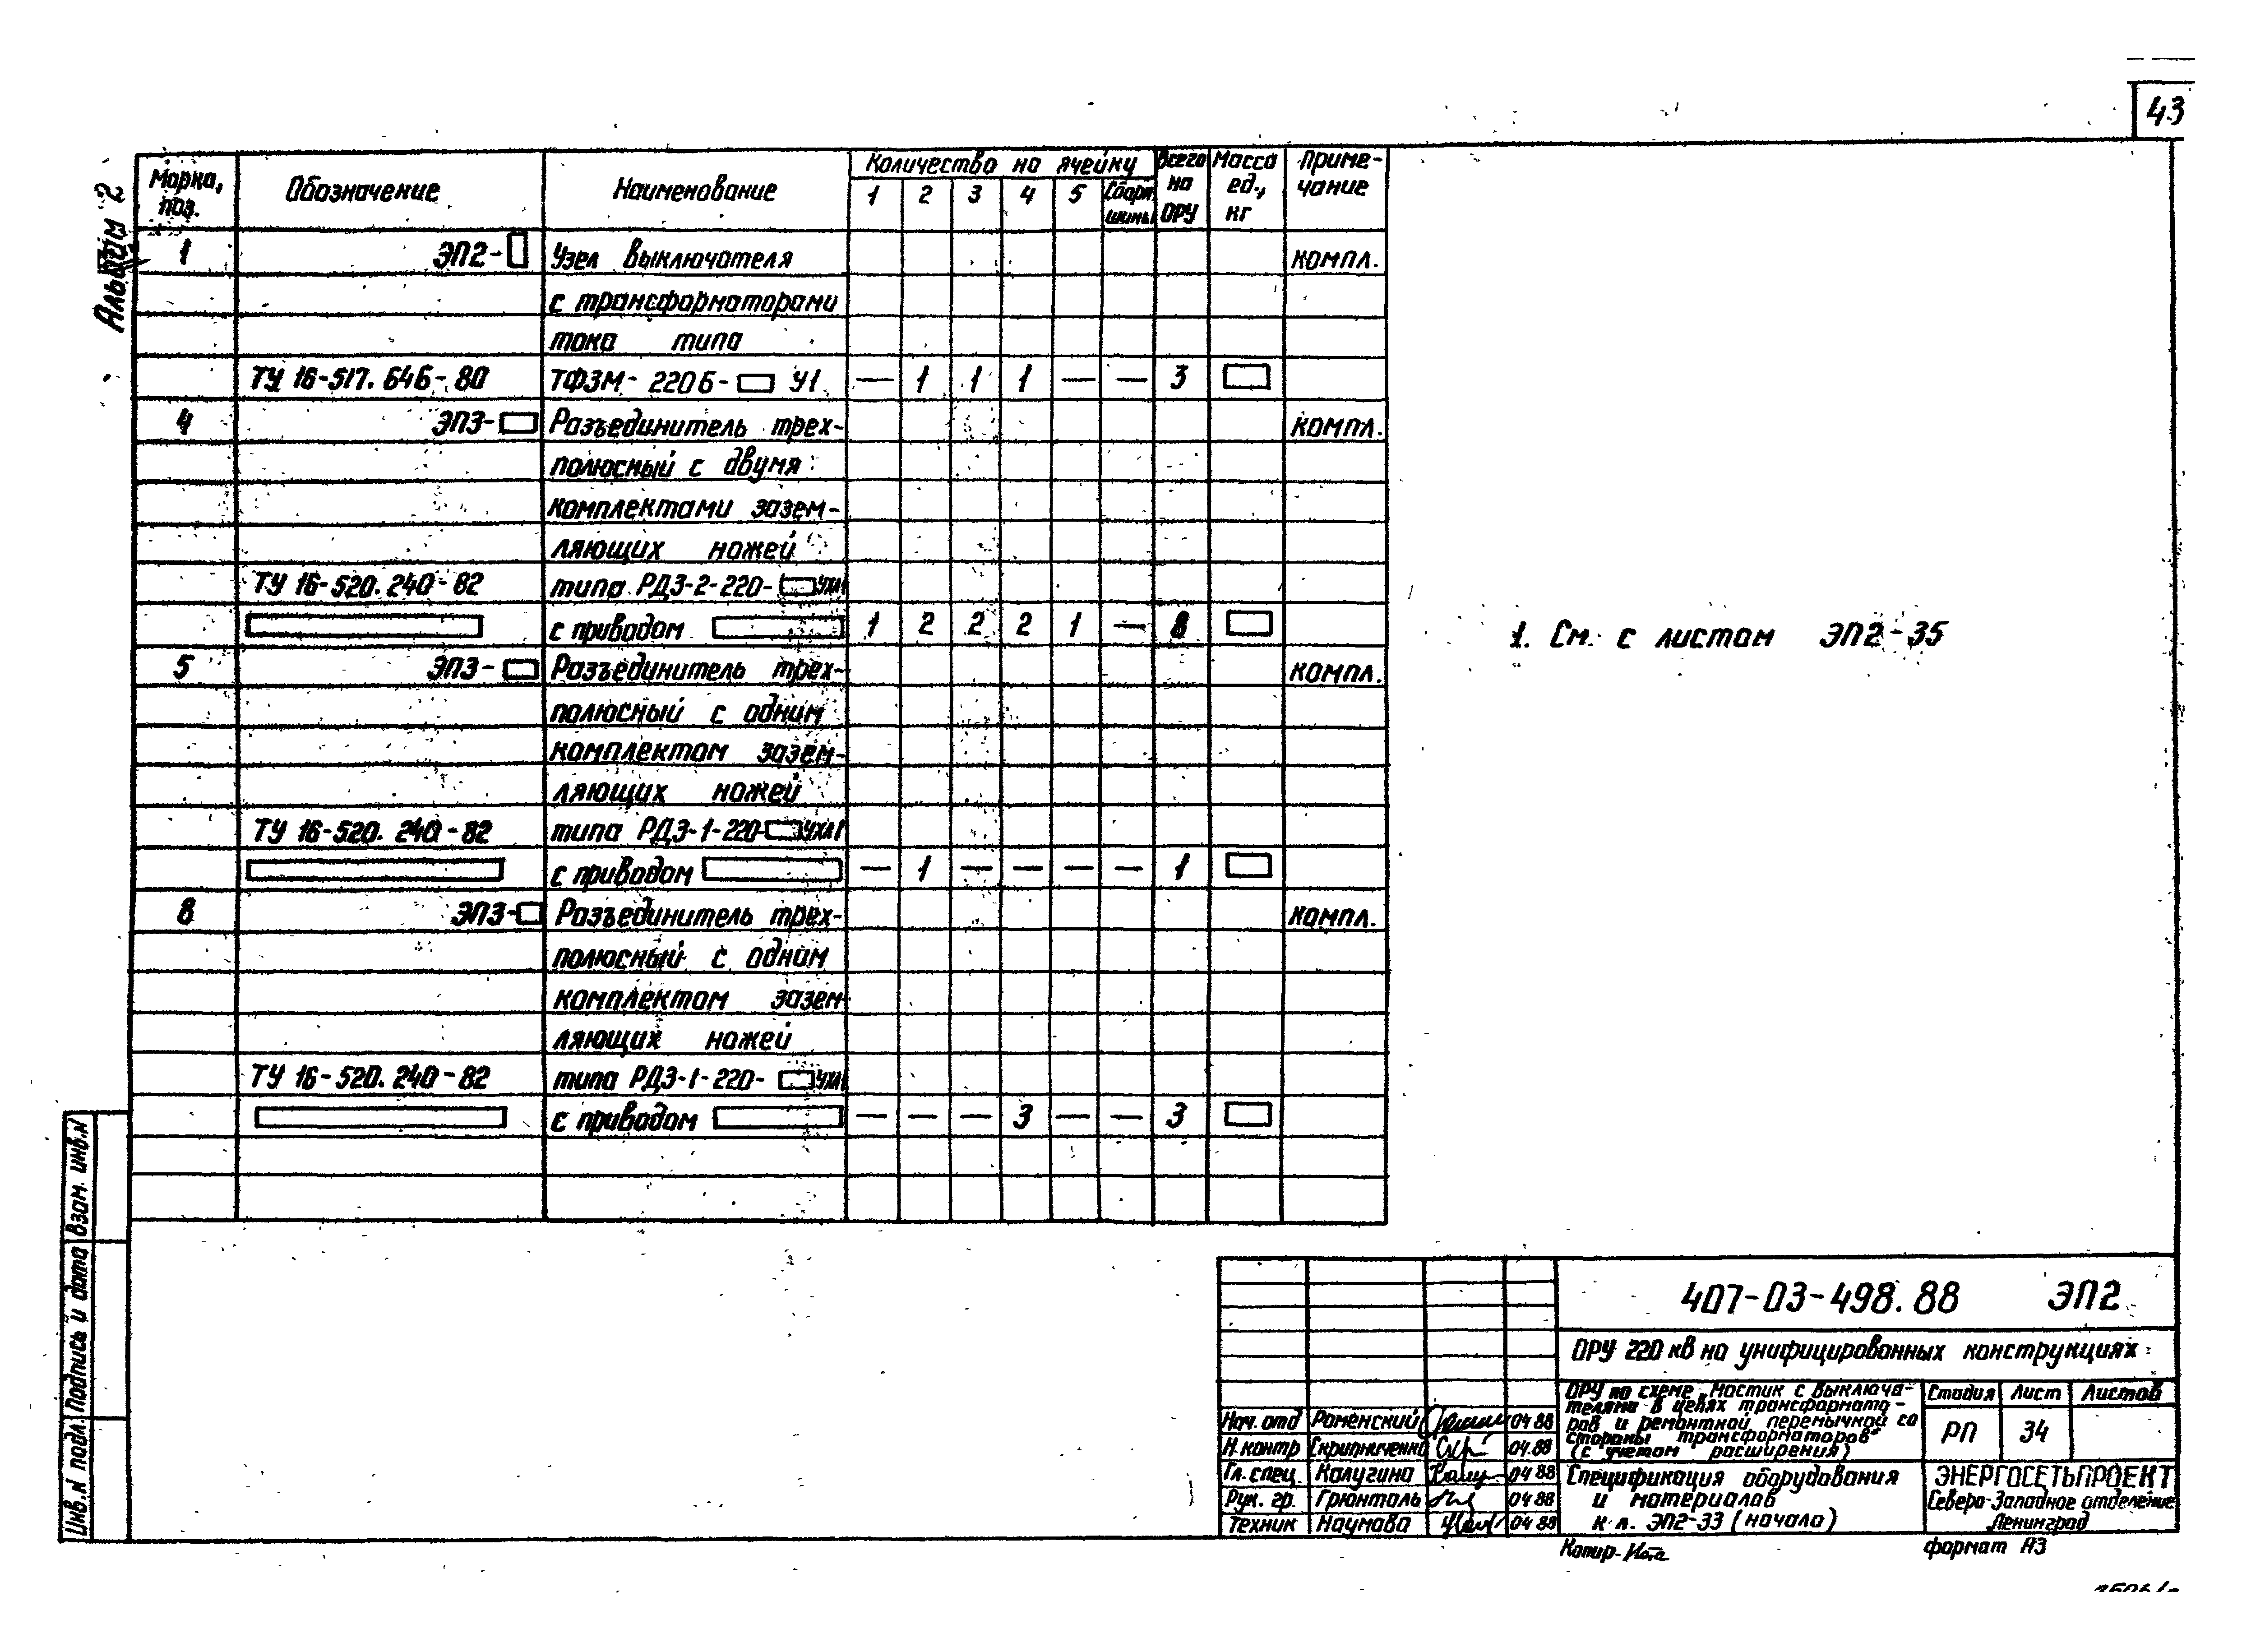 43
Альбом 2
Марка, поз. Обозначение Наименование Количество на ячейку Всего на ОРУ Масса ед., кг Приме-чание
1 2 3 4 5 Сборн. шины
1 ЭП2- Узел выключателя компл.
с трансформаторами
тока типа
ТУ 16-517.646-80 ТФЗМ-220Б- У1 — 1 1 1 — — 3
4 ЭП3- Разъединитель трех- компл.
полюсный с двумя
комплектами зазем-
ляющих ножей
ТУ 16-520.240-82 типа РДЗ-2-220- УХЛ1
с приводом 1 2 2 2 1 — 8
5 ЭП3- Разъединитель трех- компл.
полюсный с одним
комплектом зазем-
ляющих ножей
ТУ 16-520.240-82 типа РДЗ-1-220- УХЛ1
с приводом — 1 — — — — 1
8 ЭП3- Разъединитель трех- компл.
полюсный с одним
комплектом зазем
ляющих ножей
ТУ 16-520.240-82 типа РДЗ-1-220- УХЛ1
с приводом — — — 3 — — 3
1. См. с листом ЭП2-35
Инв.N подл. Подпись и дата Взам. инв.N
407-03-498.88 ЭП2
ОРУ 220 кв на унифицированных конструкциях
ОРУ по схеме „Мостик с выключа-
телями в цепях трансформато-
ров и ремонтной перемычкой со
стороны трансформаторов"
(с учетом расширения)
Стадия Лист Листов
РП 34
Нач. отд Роменский 04 88
Н. контр Скрипниченко 04.88
Гл. спец. Калугина 04 88
Рук. гр. Грюнталь 04 88
Техник Наумова 04 88
Спецификация оборудования
и материалов
к л. ЭП2-33 (начало)
ЭНЕРГОСЕТЬПРОЕКТ
Северо-Западное отделение
Ленинград
Копир-
формат А3